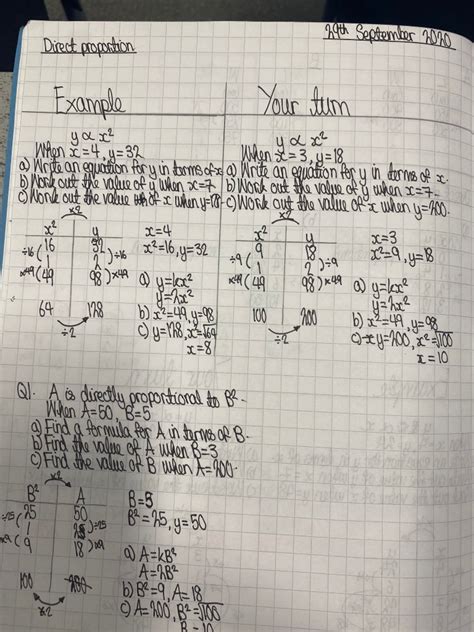 29th September 2020
Direct proportion
Example
y ∝ x²
When x=4, y=32
a) Write an equation for y in terms of x
b) Work out the value of y when x=7
c) Work out the value of x when y=128
×2
x² y
16 32
÷16 ( 1 2 ) ÷16
×49 ( 49 98 ) ×49
64 128
÷2
x=4
x²=16, y=32
a) y=kx²
y=2x²
b) x²=49, y=98
c) y=128, x²=√64
x=8
Your turn
y ∝ x²
When x=3, y=18
a) Write an equation for y in terms of x.
b) Work out the value of y when x=7.
c) Work out the value of x when y=200.
×2
x² y
9 18
÷9 ( 1 2 ) ÷9
×49 ( 49 98 ) ×49
100 200
÷2
x=3
x²=9, y=18
a) y=kx²
y=2x²
b) x²=49, y=98
c) y=200, x²=√100
x=10
Q1. A is directly proportional to B².
When A=50, B=5
a) Find a formula for A in terms of B.
b) Find the value of A when B=3
c) Find the value of B when A=200.
×2
B² A
25 50
÷25 ( 1 2 ) ÷25
×9 ( 9 18 ) ×9
100 200
×2
B=5
B²=25, y=50
a) A=kB²
A=2B²
b) B²=9, A=18
c) A=200, B²=√100
B=10